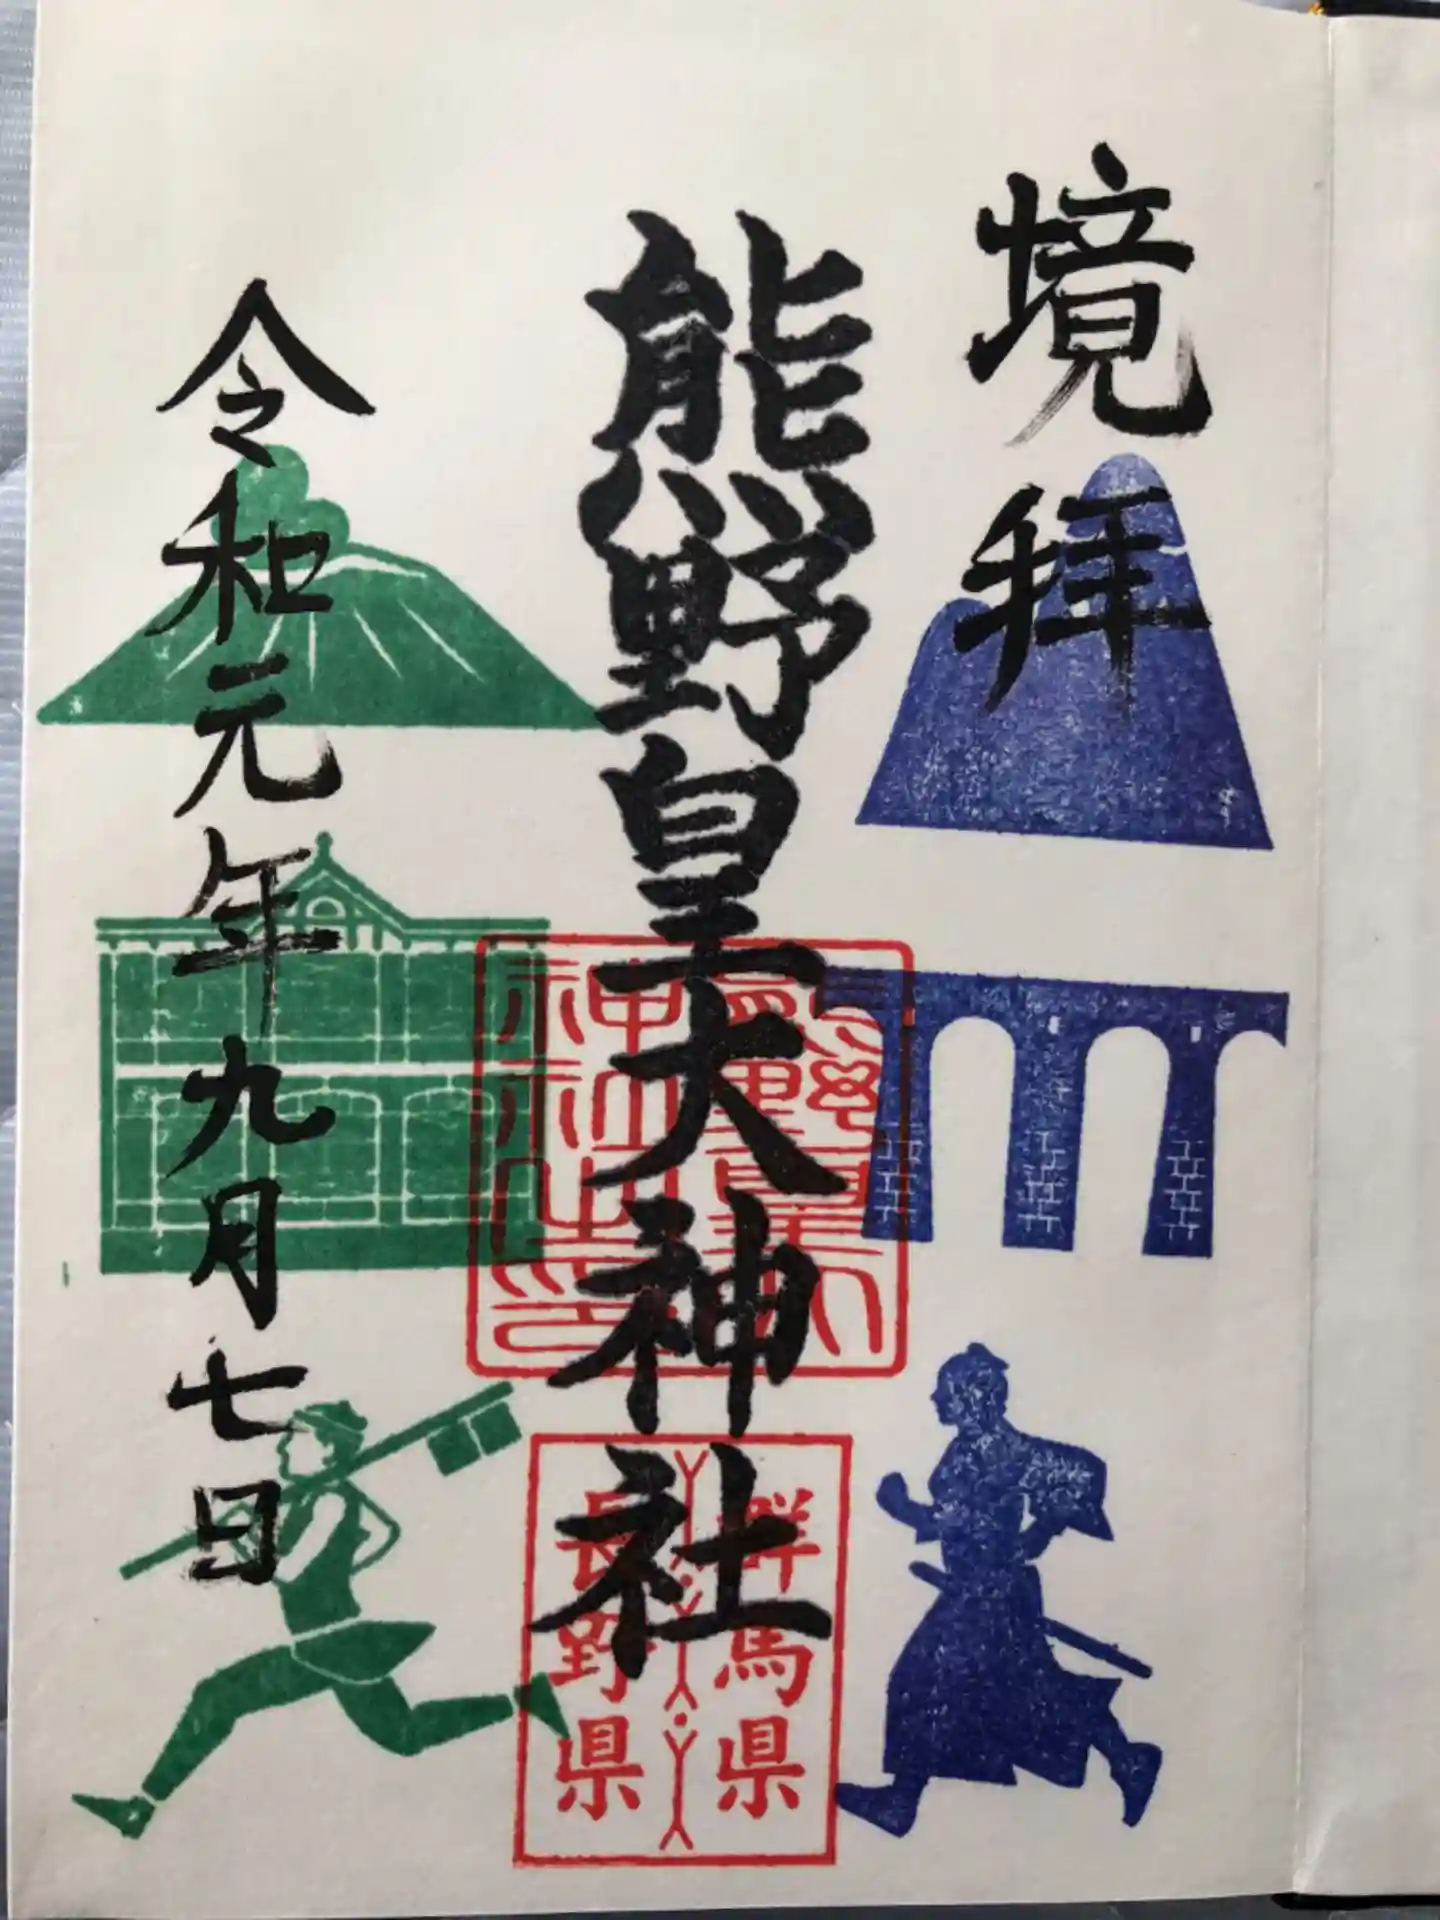 境拝
熊野皇大神社
熊野皇大
神社之印
群馬県
長野県
令和元年九月七日